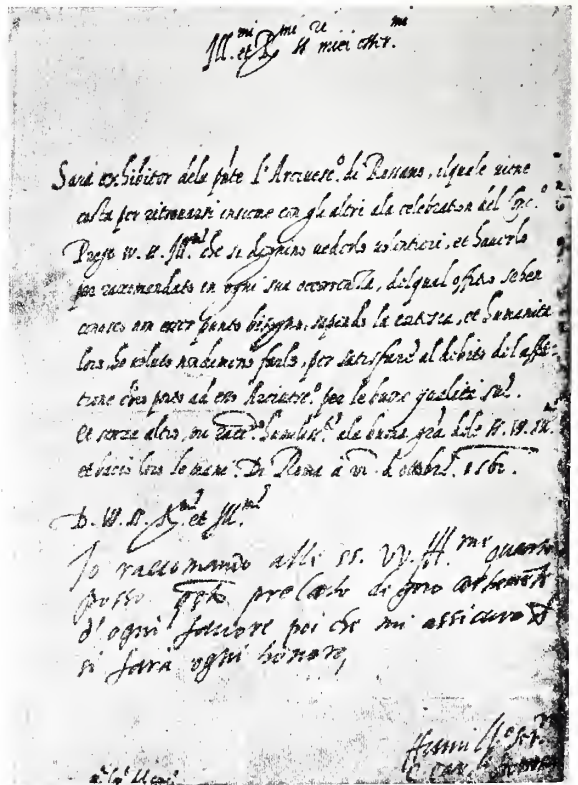 Ill.mi et R.mi
Sarà exhibitor dela p̄nte l'Arcivesc.o di Rossano, il quale viene
costà per ritrovarsi insieme con gli altri ala celebration del
Prego V. S. Ill.me che si degnino vederlo volontieri, et haverlo
per raccomandato in ogni sua occorrenza, del qual offitio se ben
conosco non esser punto bisogno, sapendo la cortesia, et humanità
loro, ho voluto nondimeno farlo, per satisfare al debito del affe-
tione ch'io porto ad esso Arcivesc.o per le buone qualità sue.
Et senza altro, humilm.te ala buona gr̄a dele V. S. Ill.me
et bacio loro le mane. Di Roma a vi d'ottobre 1561.
D. V. S. R.me et Ill.me
Io raccomando alle SS. VV. Ill.me quanto
posso prelato degno
d'ogni favore poi che mi assicuro
si farà ogni honore,
Humil.